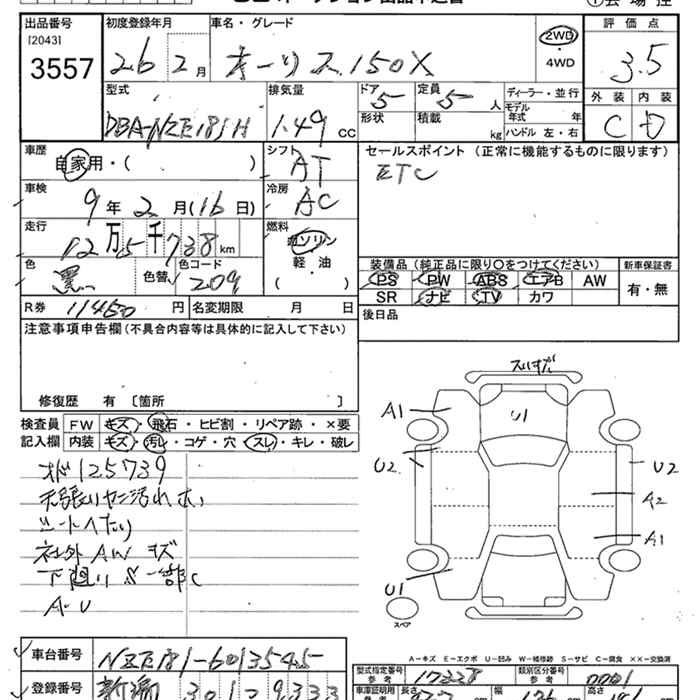 出品番号 初度登録年月 車名・グレード 2WD・4WD 評価点
[2043] 3557 26 2月 オーリス 150X 3.5
型式 排気量 ドア 定員 ディーラー・並行 外装 内装
DBA-NZE181H 1.49 CC 5 5 人 モデル年式 年 C D
形状 積載 kg ハンドル 左・右
車歴 自家用・( ) シフト AT セールスポイント (正常に機能するものに限ります)
ETC
車検 9年2月(16日) 冷房 AC
走行 12万5千738km 燃料 ガソリン 軽・油 ( )
装備品 (純正品に限り○をつけてください) 新車保証書
色 黒 色替 色コード 209 PS PW ABS エアB AW 有・無
SR ナビ TV カワ
R券 11450円 名変期限 月 日 後日品
注意事項申告欄 (不具合内容等は具体的に記入して下さい)
修復歴 有 〔箇所 〕
検査員 FW キズ・飛石・ヒビ割・リペア跡・×要
記入欄 内装 キズ・汚レ・コゲ・穴・スレ・キレ・破レ
125739
シートヘたり
社外AWキズ
A・U
A1
U1
U2
U2
A2
A1
U1
スペア
A-キズ E-エクボ U-凹み W-補修跡 S-サビ C-腐食 XX-交換済
車台番号 NZE181-6013545 型式指定番号 参考 17328 類別区分番号 参考 0001
登録番号 新潟 301 9333 車庫証明用 長さ 高さ